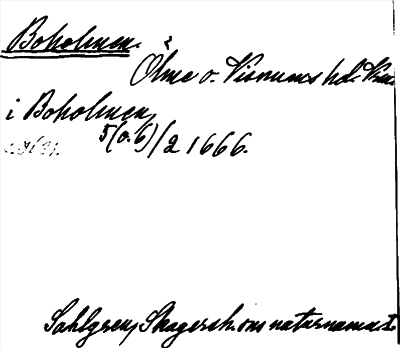 Boholmen.
Ölme o. Visnums hd. Vrm
i Boholmen
5(o. 6)/2 1666.
Sahlgren, Skagersh. om naturnamn